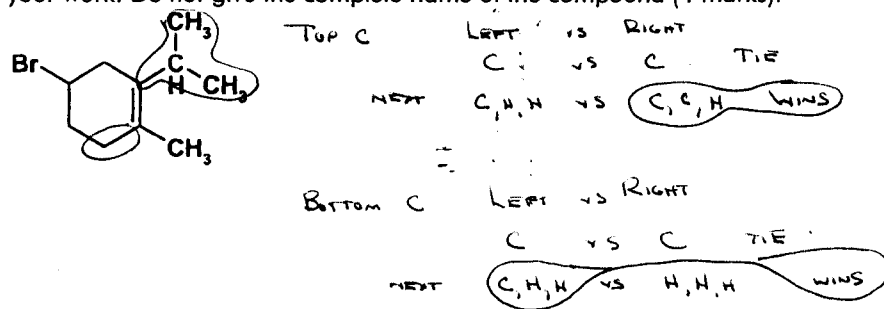 your work. Do not give the complete name of the compound (4 marks).
TOP C LEFT vs RIGHT
C vs C TIE
NEXT C,H,H vs C,C,H WINS
Br
CH3
C
H
CH3
CH3
BOTTOM C LEFT vs RIGHT
C vs C TIE
NEXT C,H,H vs H,H,H WINS